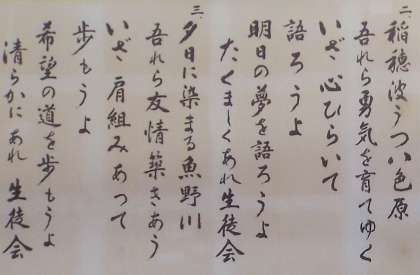 二、稲穂波うつ八色原
吾れら勇気を育てゆく
いざ心ひらいて
語ろうよ
明日の夢を語ろうよ
たくましくあれ生徒会
三、夕日に染まる魚野川
吾れら友情築きあう
いざ肩組みあって
歩もうよ
希望の道を歩もうよ
清らかにあれ 生徒会